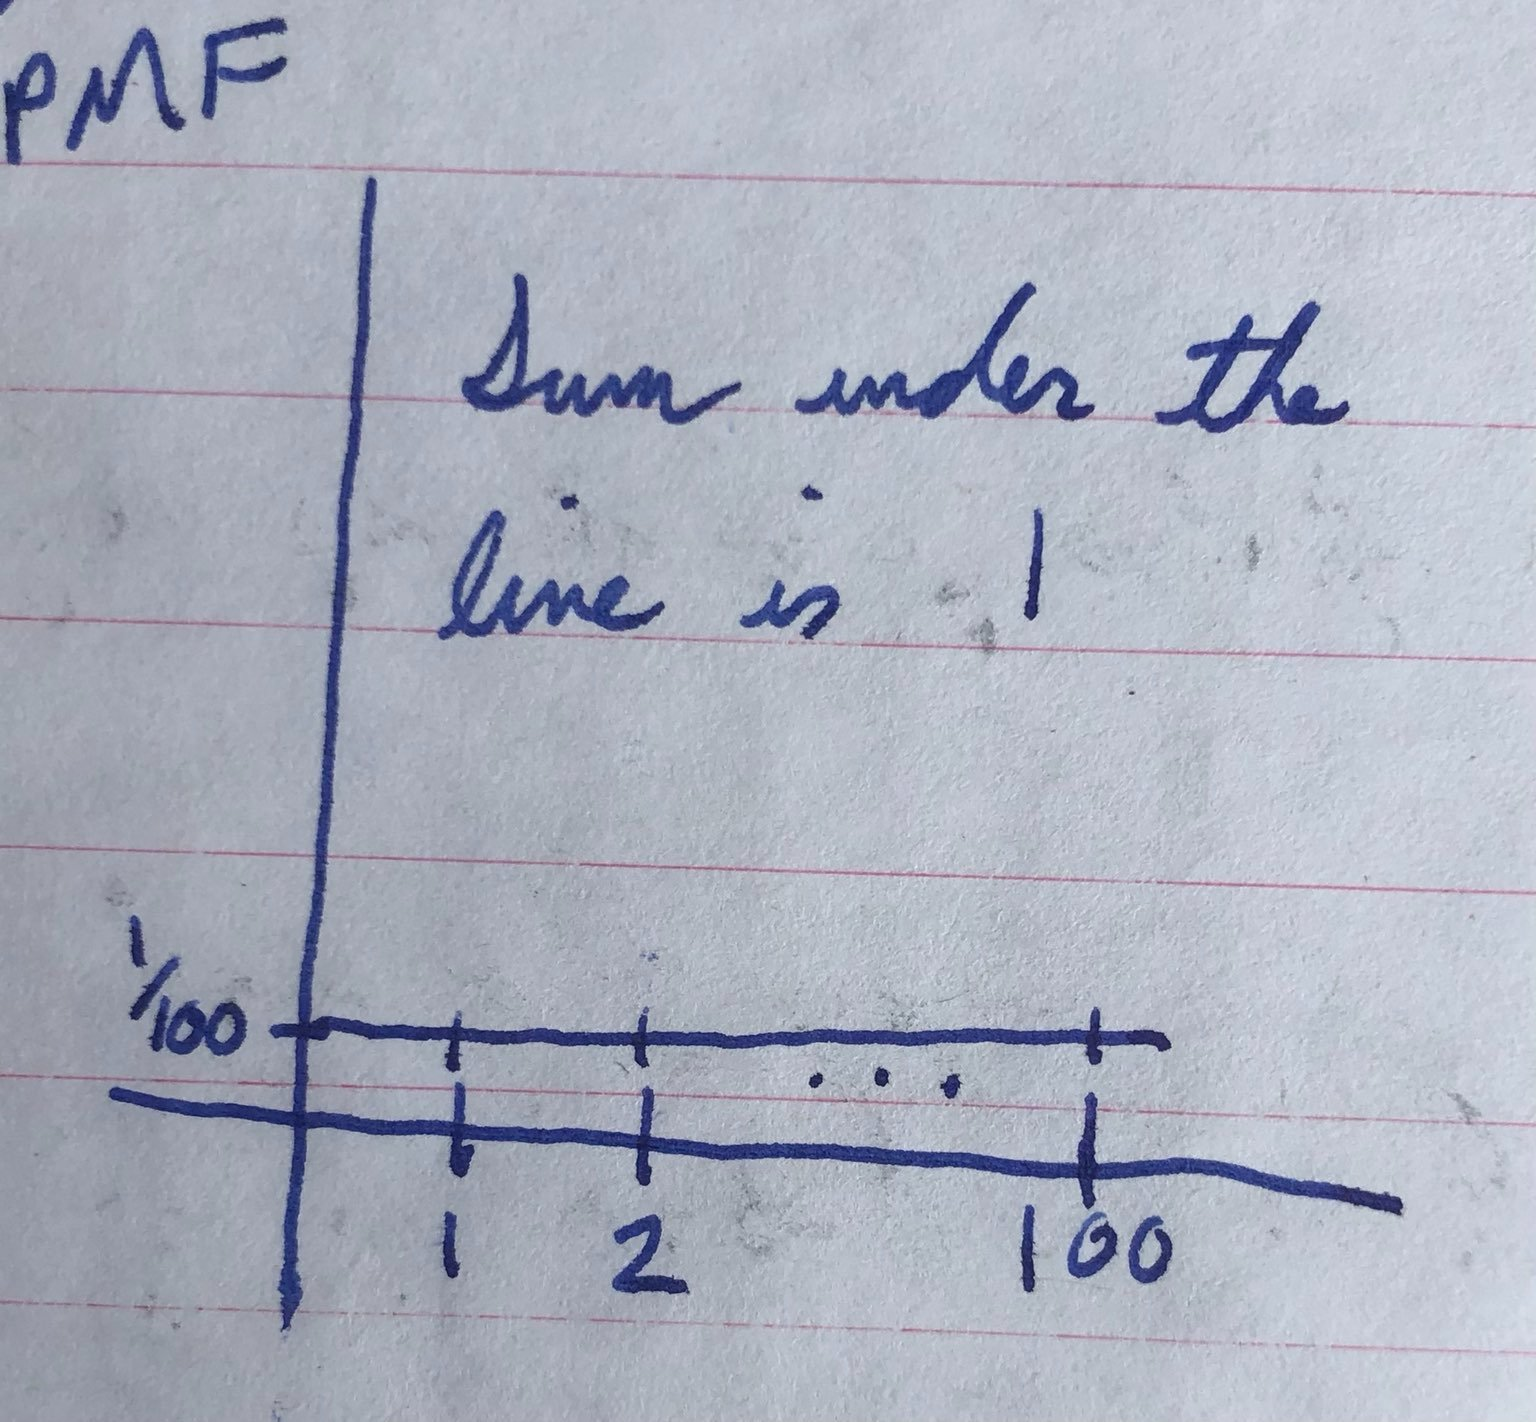 PMF
Sum under the
line is 1
1/100
. . .
1 2 100